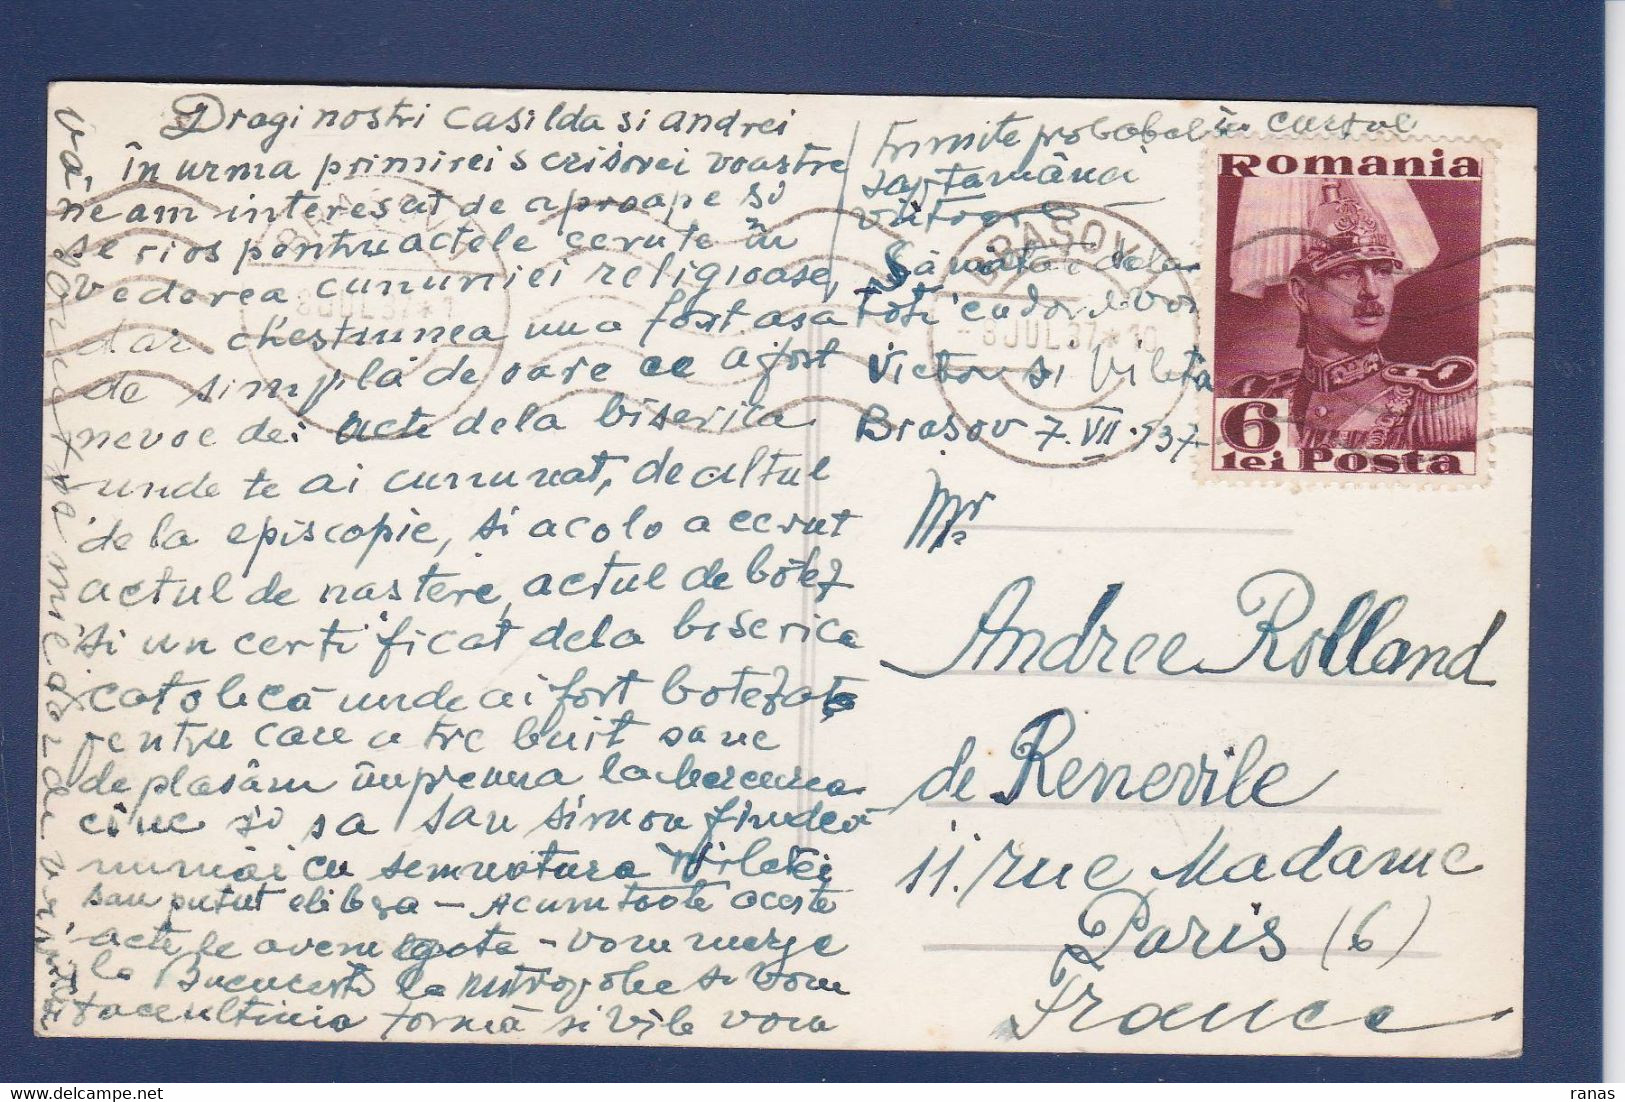 Dragi nostri Casilda si Andrei
în urma primirei scrisorei voastre
ne am interesat de aproape si
serios pentru actele cerute în
vederea cununiei religioase,
dar chestiunea nu a fost asa
de simplă de oare ce a fost
nevoe de acte dela biserica
unde te ai cununat, de altul
de la episcopie, si acolo a cerut
actul de nastere, actul de botez
si un certificat dela biserica
catolică unde ai fost botezat
pentru care a trebuit sa ne
deplasăm împreuna la
si sa sau Simon fiindcă
numai cu semnatura Viletei
sau putut elibera - Acum toate aceste
acte le avem gata - vom merge
la Bucuresti la mitropolie si vom
face ultima formă si vi le vom
trimite probabil în cursul
saptamânei
viitoare
Sănătate dela
toti cu dor de voi
Victor si Vileta
Brasov 7.VII.937
Romania
6
lei Posta
BRAȘOV
8 JUL 37 * 1
BRAȘOV
- 8 JUL 37 * 10
Mr
Andree Rolland
de Renevile
11. rue Madame
Paris (6)
France
ranas